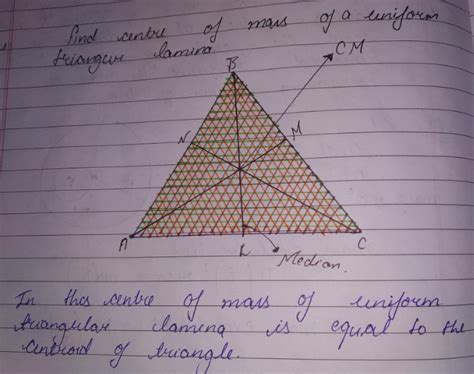 Find centre of mass of a uniform
triangular lamina
CM
B
N
M
A
L
C
Median.
In this centre of mass of uniform
triangular lamina is equal to the
centroid of triangle.